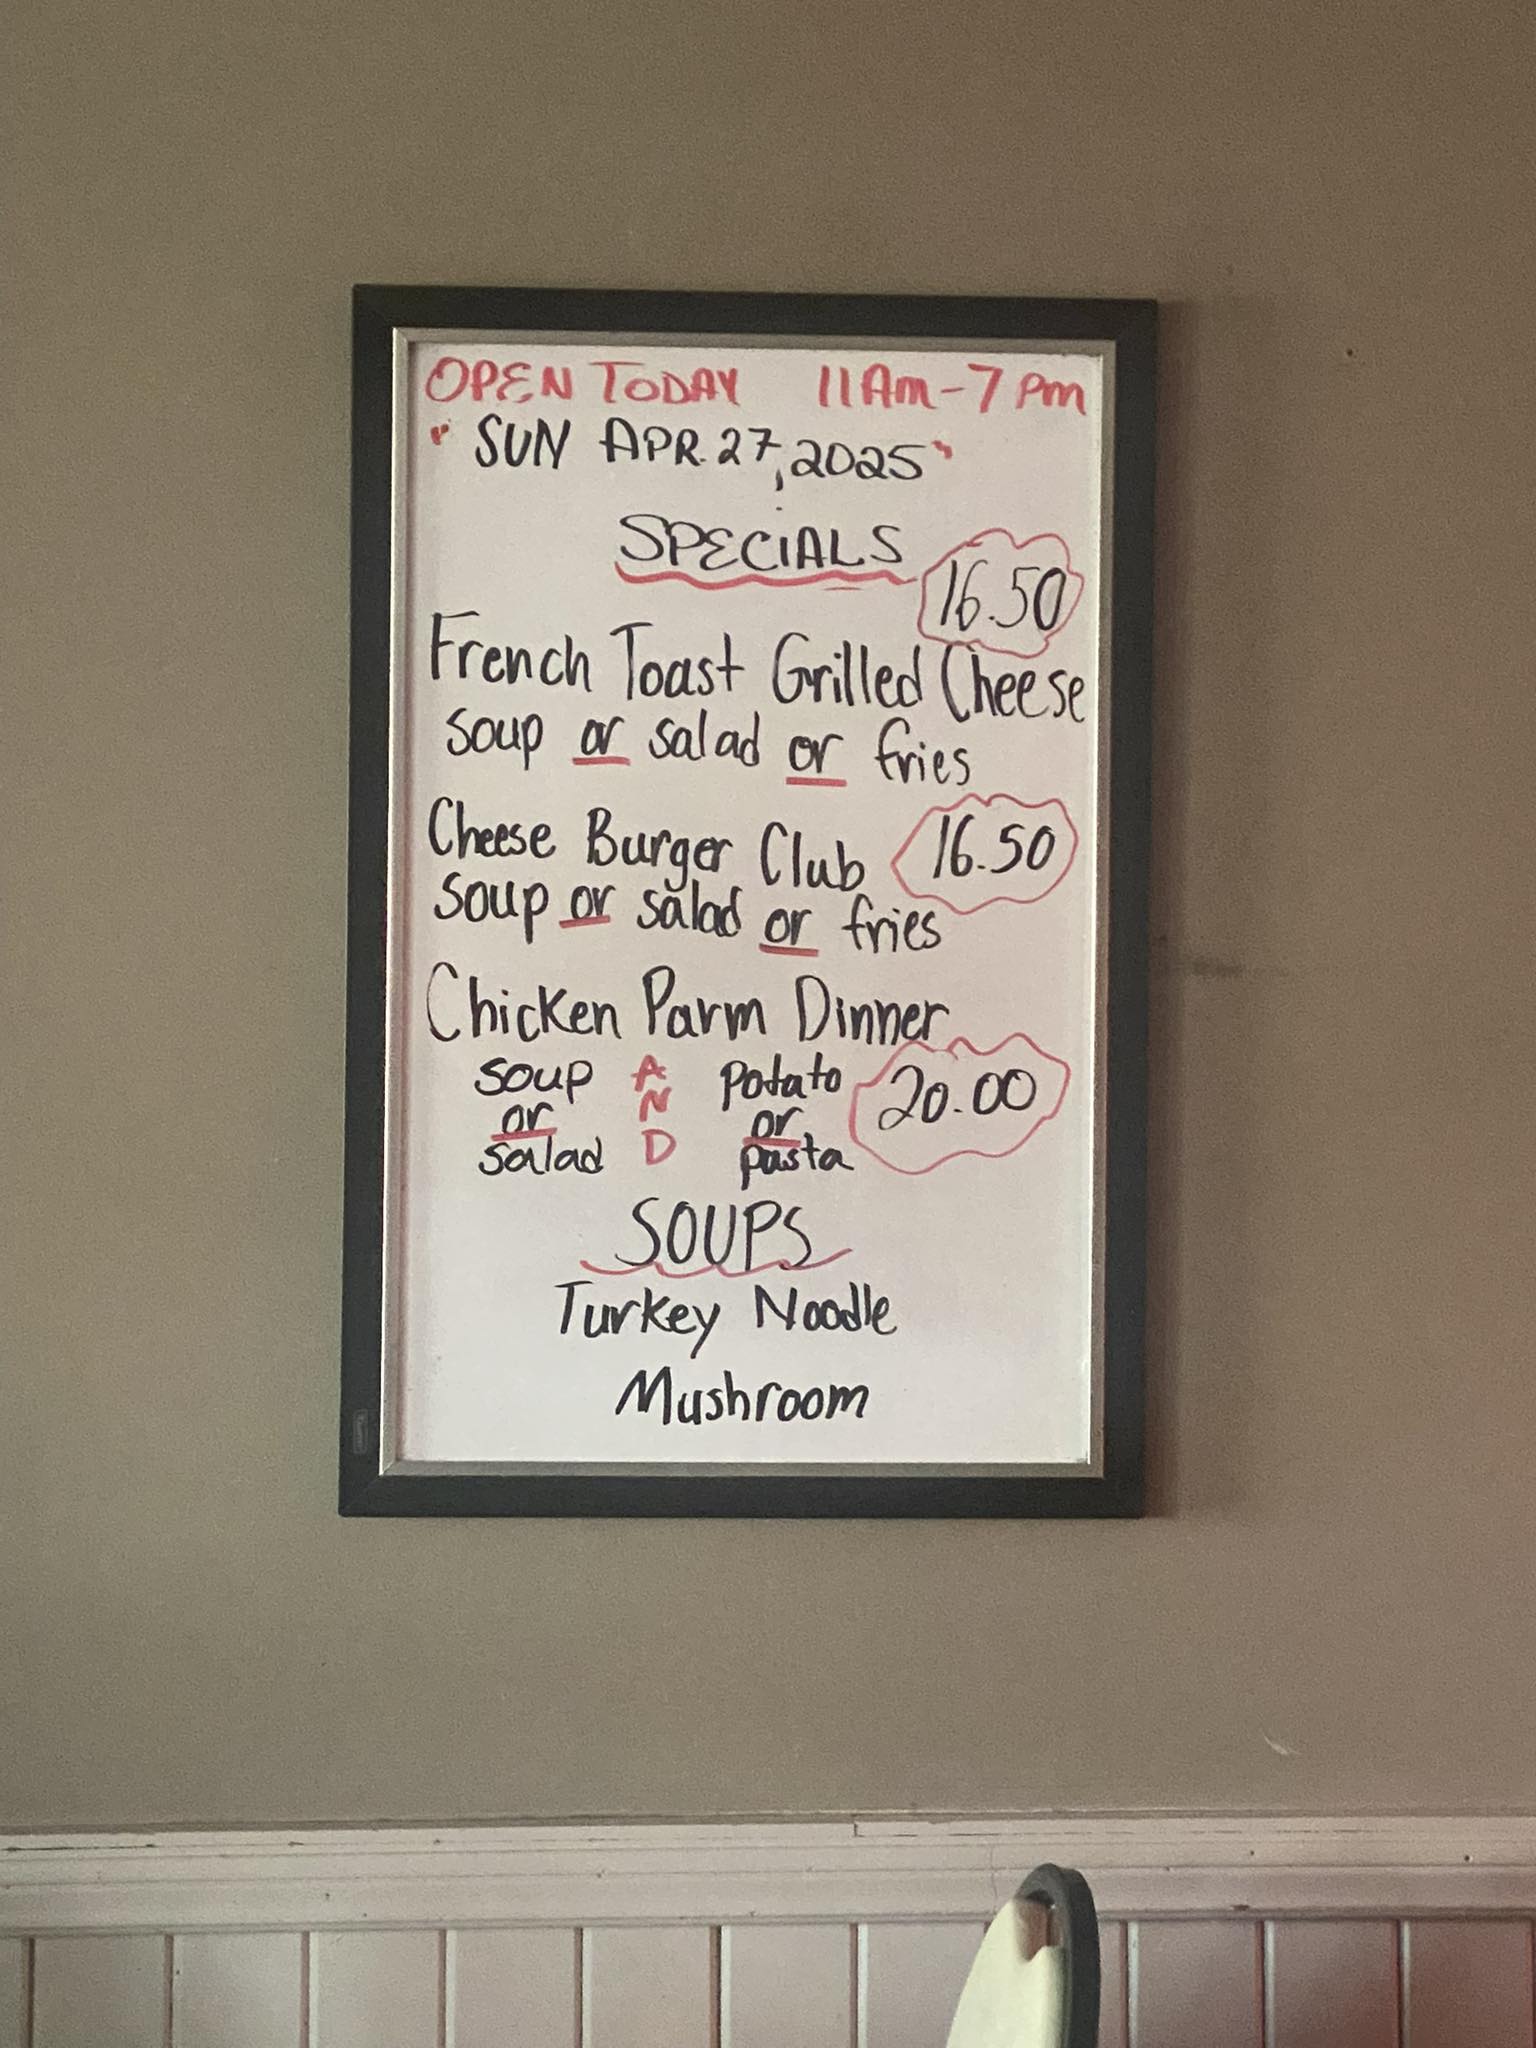 OPEN TODAY 11AM-7PM
"SUN APR. 27, 2025"
SPECIALS
16.50
French Toast Grilled Cheese
soup or salad or fries
Cheese Burger Club 16.50
soup or salad or fries
Chicken Parm Dinner
soup or salad AND potato or pasta 20.00
SOUPS
Turkey Noodle
Mushroom